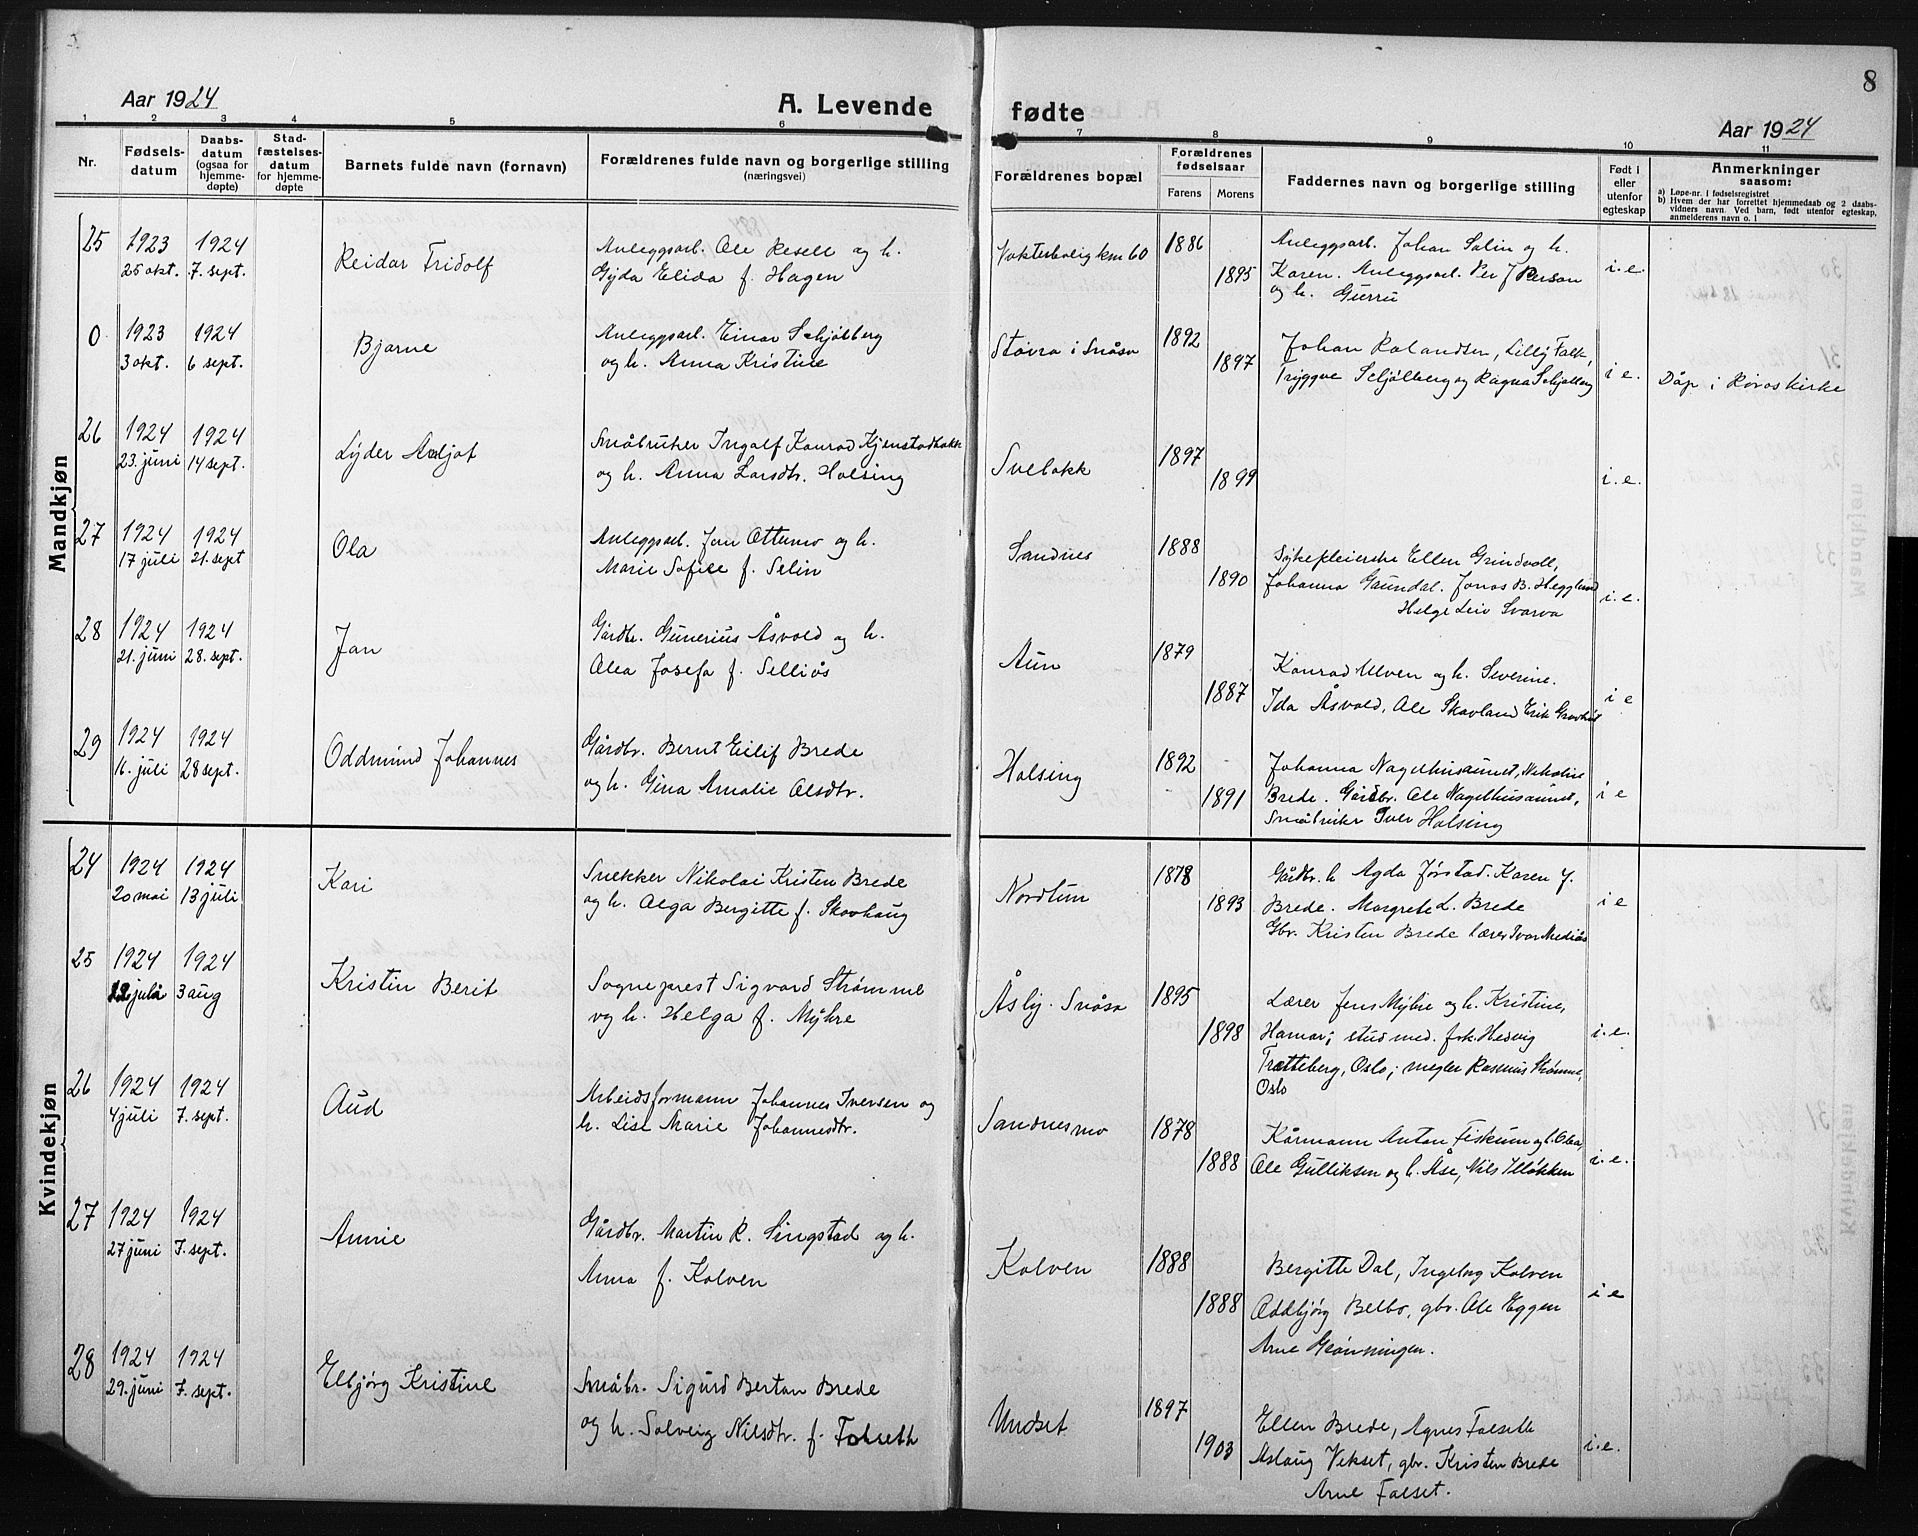 8
Aar 1924
A. Levende fødte
Aar 1924
1 2 3 4 5 6 7 8 9 10 11
Nr.
Fødselsdatum
Daabsdatum (ogsaa for hjemmedøpte)
Stadfæstelsesdatum for hjemmedøpte
Barnets fulde navn (fornavn)
Forældrenes fulde navn og borgerlige stilling (næringsvei)
Forældrenes bopæl
Forældrenes fødselsaar
Farens Morens
Faddernes navn og borgerlige stilling
Født i eller utenfor egteskap
Anmerkninger saasom:
a) Løpe-nr. i fødselsregistret
b) Hvem der har forrettet hjemmedaab og 2 daabsvidners navn. Ved barn, født utenfor egteskap, anmelderens navn o. l.
Mandkjøn
25 1923 1924 Anleggsarb. Ole Resell og h. 1886 Anleggsarb. Johan Solin og h.
25 okt. 7. sept. Reidar Fridolf Gyda Elida f. Hagen Vokterbolig km 60 1895 Karen. Anleggsarb. Per J Person i. e.
og h. Gurru
0 1923 1924 Anleggsarb. Einar Schjølberg 1892 Johan Rolandsen, Lilly Falk,
3 okt. 6 sept. Bjarne og h. Anna Kristine Støvra i Snåsa 1897 Tryggve Schjølberg og Ragna Schjølberg i e. Dåp i Røros kirke
26 1924 1924 Småbruker Ingolf Konrad Kjenstadbakk 1897
23. juni 14 sept. Lyder Asljot og h. Anna Larsdtr. Holsing Svebakk 1899 i. e.
27 1924 1924 Anleggsarb. Jon Ottermo og h. 1888 Sykepleierske Ellen Grindvoll,
17 juli 21. sept Ola Marie Sofie f. Selin Sandnes 1890 Johanna Gaundal. Jonas B. Heggland i. e.
Helge Leiv Svarva
28 1924 1924 Gårdbr. Gunerius Åsvold og h. 1879 Konrad Ulven og h. Severine.
21. juni 28. sept. Jan Olea Josefa f. Selliås Aun 1887 Ida Åsvold, Ole Skavland i e
29 1924 1924 Gårdbr. Bernt Eilif Brede 1892 Johanna Nagelhusaunet, Nikoline
16. juli 28 sept. Oddmund Johannes og h. Gina Amalie Olsdtr. Holsing 1891 Brede. Gårdbr. Ole Nagelhusaunet, i e
Småbruker Iver Holsing
Kvindekjøn
24 1924 1924 Snekker Nikolai Kristen Brede 1878 Gårdbr. h Agda Jørstad. Karen J.
20 mai 13 juli Kari og h. Olga Bergitte f. Skovhaug Nordtun 1893 Brede. Margrete L. Brede i e
Gbr. Kristen Brede lærer Ivar Mediås
25 1924 1924 Sogneprest Sigvard Strømme 1895 Lærer Jens Myhre og h. Kristine,
12 juli 3 aug Kristin Berit og h. Helga f. Myhre Åsby. Snåsa 1898 Hamar; stud med. frk. Hedvig i. e.
Trætteberg, Oslo; megler Rasmus Strømme,
Oslo
26 1924 1924 Arbeidsformann Johannes Iversen og 1878 Kårmann Anton Fiskum og h. Olea,
4 juli 7. sept. Aud h. Lise Marie Johannesdtr. Sandnesmo 1888 Ole Gulliksen og h. Åse, Nils Illøkken i. e.
27 1924 1924 Gårdbr. Martin R. Singstad og h. 1888 Bergitte Dal, Ingeborg Kolven
27 juni 7. sept. Annie Anna f. Kolven Kolven 1888 Oddbjørg Belbo, gbr. Ole Eggen i e
Arne Grønningen.
28 1924 1924 Småbr. Sigurd Bertan Brede 1897 Ellen Brede, Agnes Folseth
29. juni 7. sept. Elbjørg Kristine og h. Solveig Nilsdtr. f. Folseth Undset 1903 Aslaug Vekset, gbr. Kristen Brede i. e.
Arne Folset.